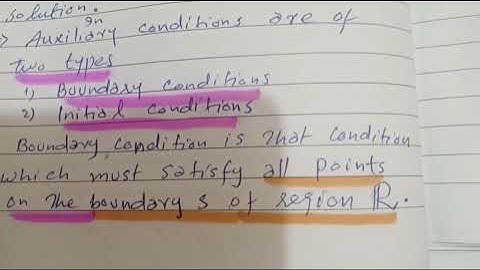 solution.
→ Auxiliary conditions are of
two types
1) Boundary conditions
2) Initial conditions
Boundary condition is that condition
which must satisfy all points
on the boundary s of region R.